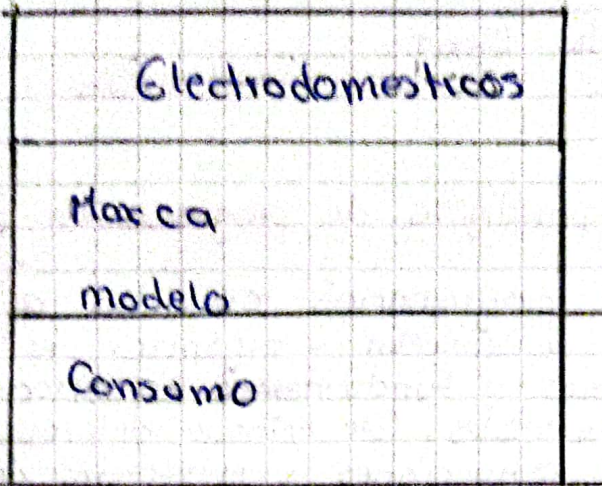 Electrodomesticos
Marca
modelo
Consumo